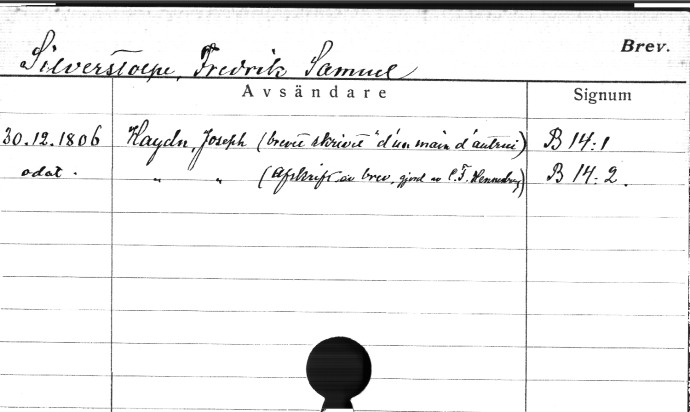 Brev.
Silverstolpe, Fredrik Samuel
Avsändare Signum
30.12.1806 Haydn, Joseph (brevet skrivit "d'un main d'autrui) B 14:1
odat. " " (Afskrift av brev, gjord av C.F. Hennerberg) B 14:2.